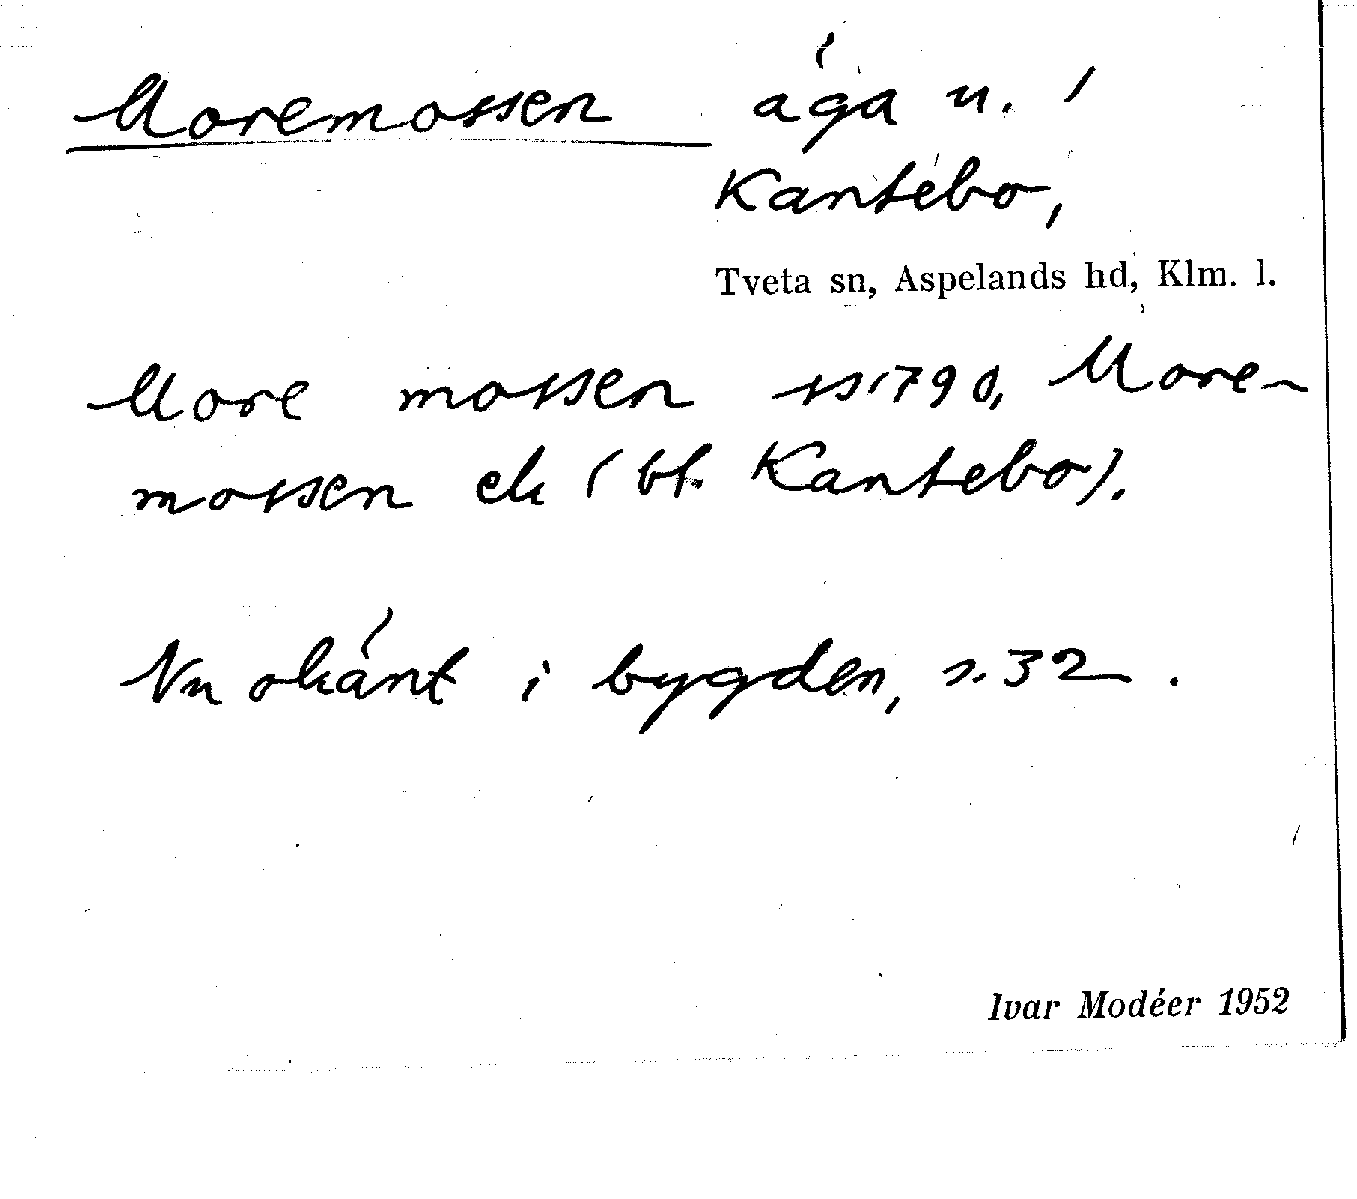 Moremossen äga n. i
Kantebo,
Tveta sn, Aspelands hd, Klm. l.
More mossen ss 1790, More-
mossen ek (bl. Kantebo).
Nu okänt i bygden, s. 32.
Ivar Modéer 1952